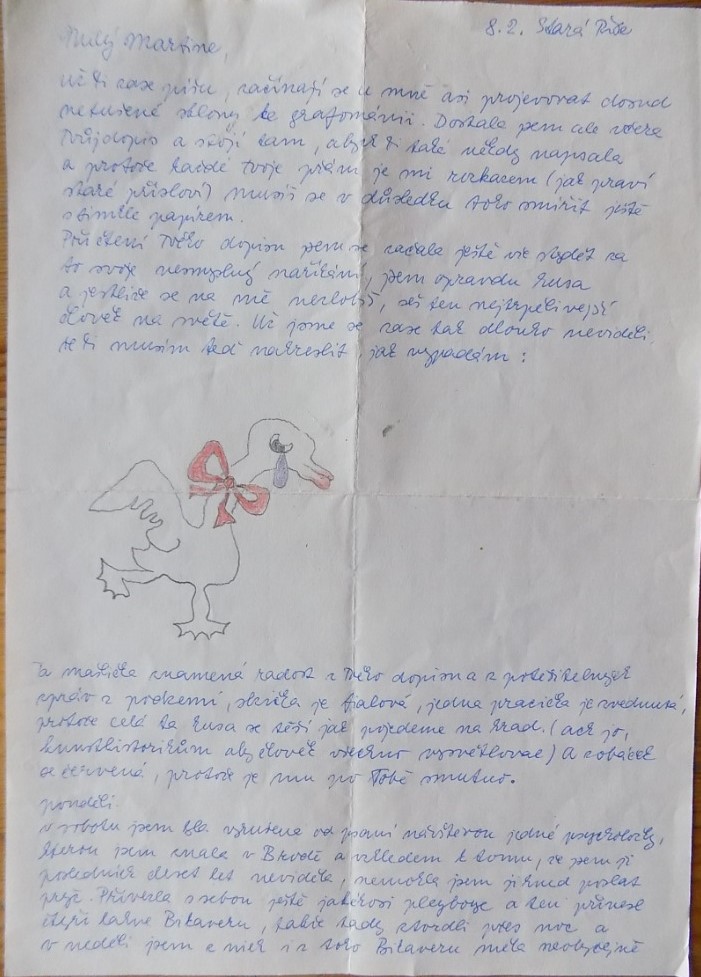 8.2. Stará Říše
Milý Martine,
už Ti zase píšu, začínají se u mně asi projevovat dosud
netušené sklony ke grafománii. Dostala jsem ale včera
Tvůj dopis a stojí tam, abych Ti také někdy napsala
a protože každé Tvoje přání je mi rozkazem (jak praví
staré přísloví) musíš se v důsledku toho smířit ještě
s tímhle papírem.
Při čtení Tvého dopisu jsem se začala ještě víc stydět za
to svoje nesmyslný naříkání, jsem opravdu husa
a jestliže se na mě nezlobíš, seš ten nejtrpělivejší
člověk na světě. Už jsme se zase tak dlouho neviděli
že Ti musím teď nakreslit, jak vypadám:
Ta mašlička znamená radost z Tvého dopisu a z potěšitelnejch
zpráv z podzemí, slzička je fialová, jedna pracička je zvednutá,
protože celá ta husa se těší jak pojedeme na hrad. (ach jo,
kunsthistorikům aby člověk všechno vysvětloval) A zobáček
se červená, protože je mu po Tobě smutno.
pondělí.
v sobotu jsem byla vyrušena od psaní návštěvou jedné psycholožky,
kterou jsem znala v Brodě a vzhledem k tomu, že jsem ji
posledních deset let neviděla, nemohla jsem ji hned poslat
pryč. Přivezla s sebou ještě jakéhosi playboye a ten přinese
čtyři lahve Bikaveru, takže tady ztvrdli přes noc a
v neděli jsem z nich i z toho Bikaveru měla neobyčejně